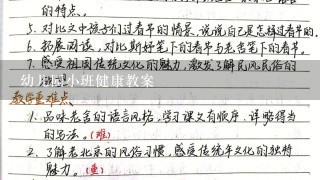 的特点。
5.对比文中孩子们过春节的情景,说说自己是怎样过春节的。
6.拓展阅读,对比斯好笔下的春节与老舍笔下的春节。
7.感受祖国传统文化的魅力,激发了解民风民俗的
幼儿园小班健康教案
教学重难点
1.品味老舍的语言风格,学习课文有顺序、详略得当
的写法。(难)
2.了解老北京的风俗习惯,感受传统年文化的独特
魅力。(重)